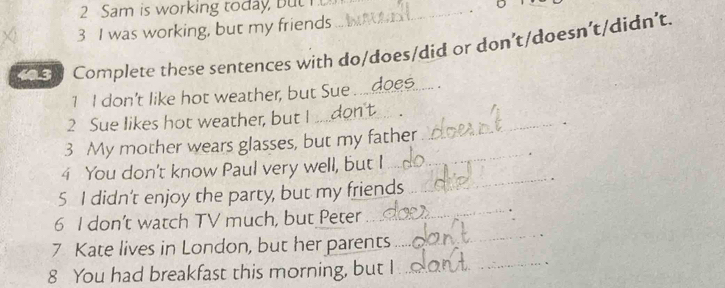 2 Sam is working today, but
3 I was working, but my friends
Complete these sentences with do/does/did or don't/doesn't/didn't.
1 I don't like hot weather, but Sue ....does...... .
2 Sue likes hot weather, but I ....don't.... .
3 My mother wears glasses, but my father doesn't .
4 You don't know Paul very well, but I do .
5 I didn't enjoy the party, but my friends did .
6 I don't watch TV much, but Peter does .
7 Kate lives in London, but her parents don't .
8 You had breakfast this morning, but I don't .